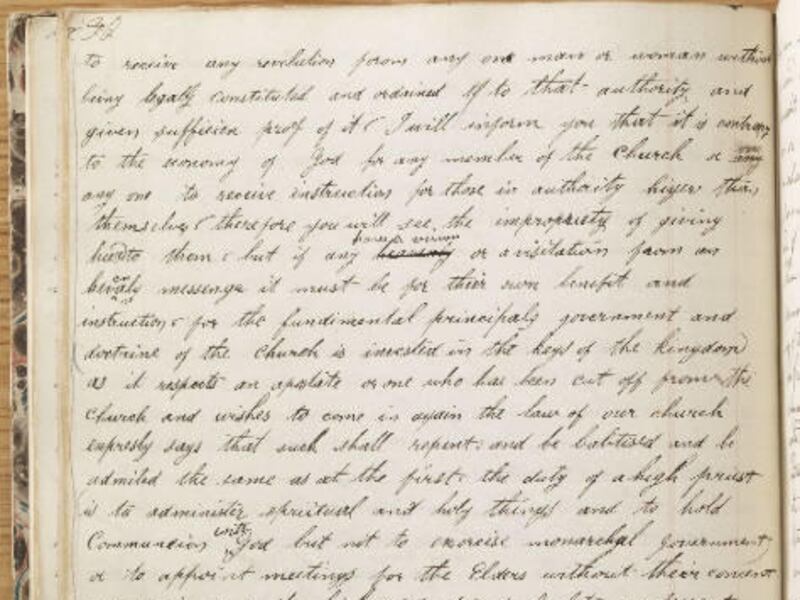 32
to receive any revelution from any one man or woman without
being legally constituted and ordained to that authority and
given sufficien prof of it I will inform you that it is contrary
to the economy of God for any member of the Church or any
any one to receive instruction for those in authority higer than
themselves therefore you will see the impropriety of giving
heed to them but if any have a vision or a visitation from an
hevenly messenge it must be for their own benefit and
instruction for the fundimental principals government and
doctrine of the Church is invested in the keys of the kingdom
as it respects an apostate or one who has been cut off from the
Church and wishes to come in again the law of our church
expressly says that such shall repent and be batised and be
admited the same as at the first the duty of a high priest
is to administer spiritual and holy things and to hold
Communion with God but not to exercise monarchal government
or to appoint meetings for the Elders without their concent